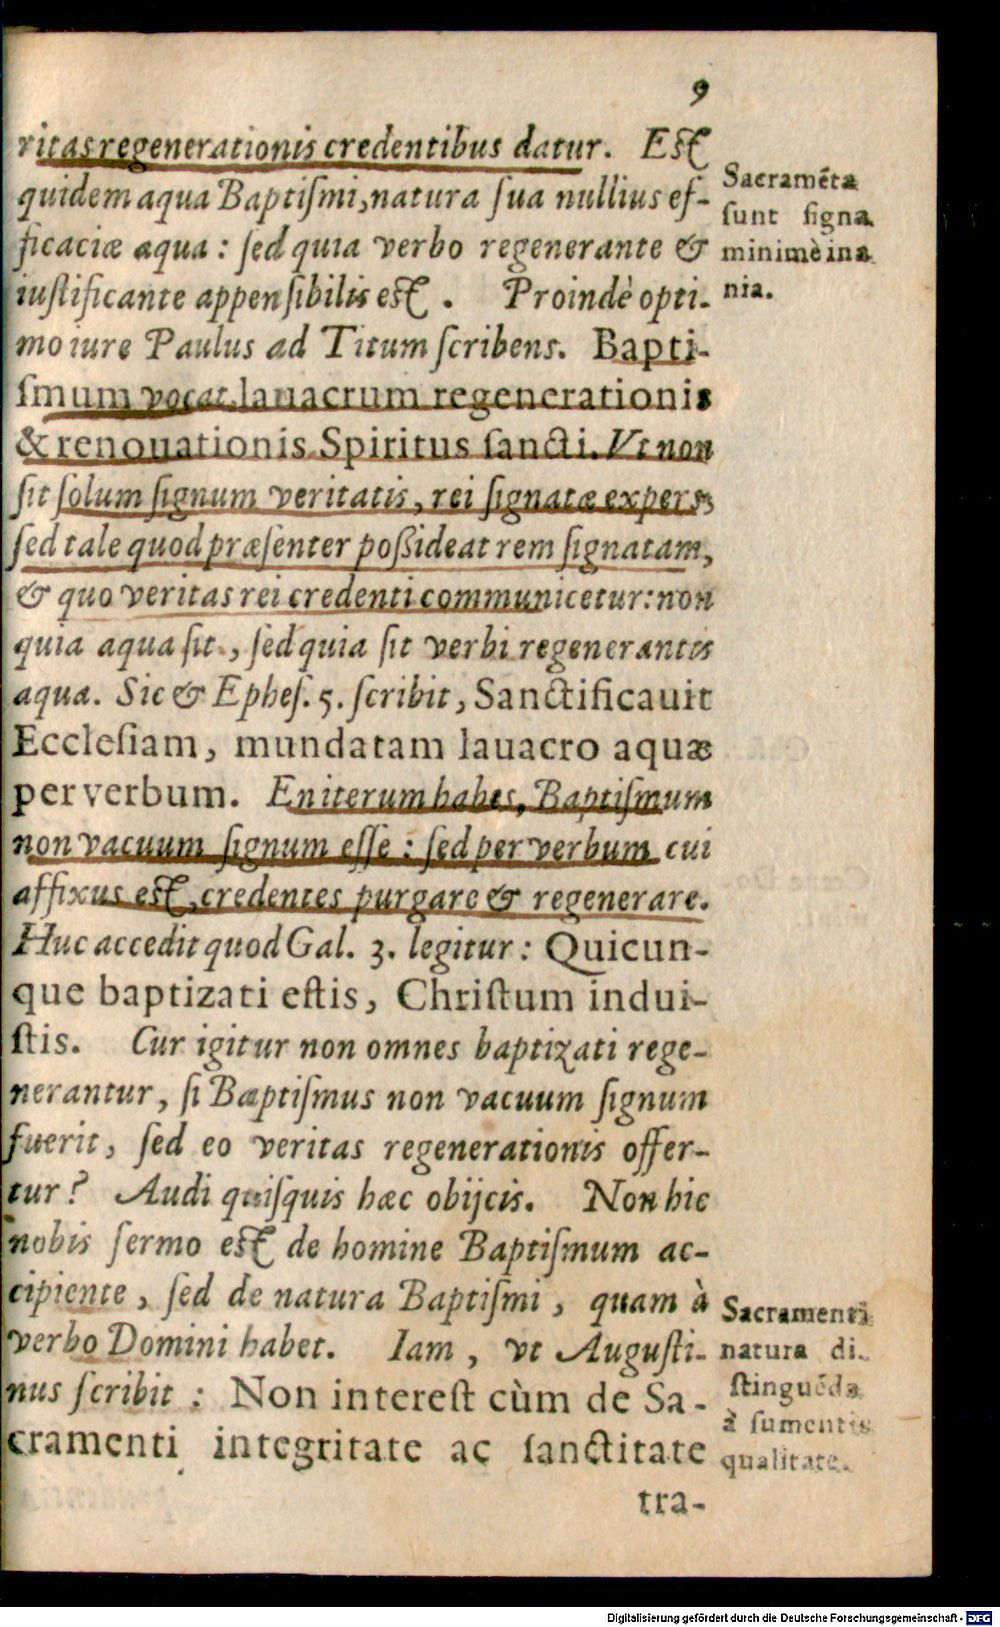 9
ritas regenerationis credentibus datur. Est
quidem aqua Baptiſmi, natura ſua nullius ef-
ficaciæ aqua: ſed quia verbo regenerante &
iuſtificante appenſibilis est. Proindè opti-
mo iure Paulus ad Titum ſcribens. Bapti-
ſmum vocat lauacrum regenerationis
& renouationis Spiritus ſancti. Vt non
ſit ſolum ſignum veritatis, rei ſignatæ expers,
ſed tale quod præſenter poßideat rem ſignatam,
& quo veritas rei credenti communicetur: non
quia aqua ſit, ſed quia ſit verbi regenerantis
aqua. Sic & Epheſ. 5. ſcribit, Sanctificauit
Eccleſiam, mundatam lauacro aquæ
per verbum. En iterum habes, Baptiſmum
non vacuum ſignum eſſe: ſed per verbum cui
affixus est, credentes purgare & regenerare.
Huc accedit quod Gal. 3. legitur: Quicun-
que baptizati eſtis, Chriſtum indui-
ſtis. Cur igitur non omnes baptizati rege-
nerantur, ſi Baptiſmus non vacuum ſignum
fuerit, ſed eo veritas regenerationis offer-
tur? Audi quiſquis hæc obijcis. Non hic
nobis ſermo est de homine Baptiſmum ac-
cipiente, ſed de natura Baptiſmi, quam à
verbo Domini habet. Iam, vt Auguſti-
nus ſcribit: Non intereſt cùm de Sa-
cramenti integritate ac ſanctitate
tra-
Sacramẽta
ſunt ſigna
minimè ina
nia.
Sacramenti
natura di-
ſtinguẽda
à ſumentis
qualitate.
Digitalisierung gefördert durch die Deutsche Forschungsgemeinschaft - DFG